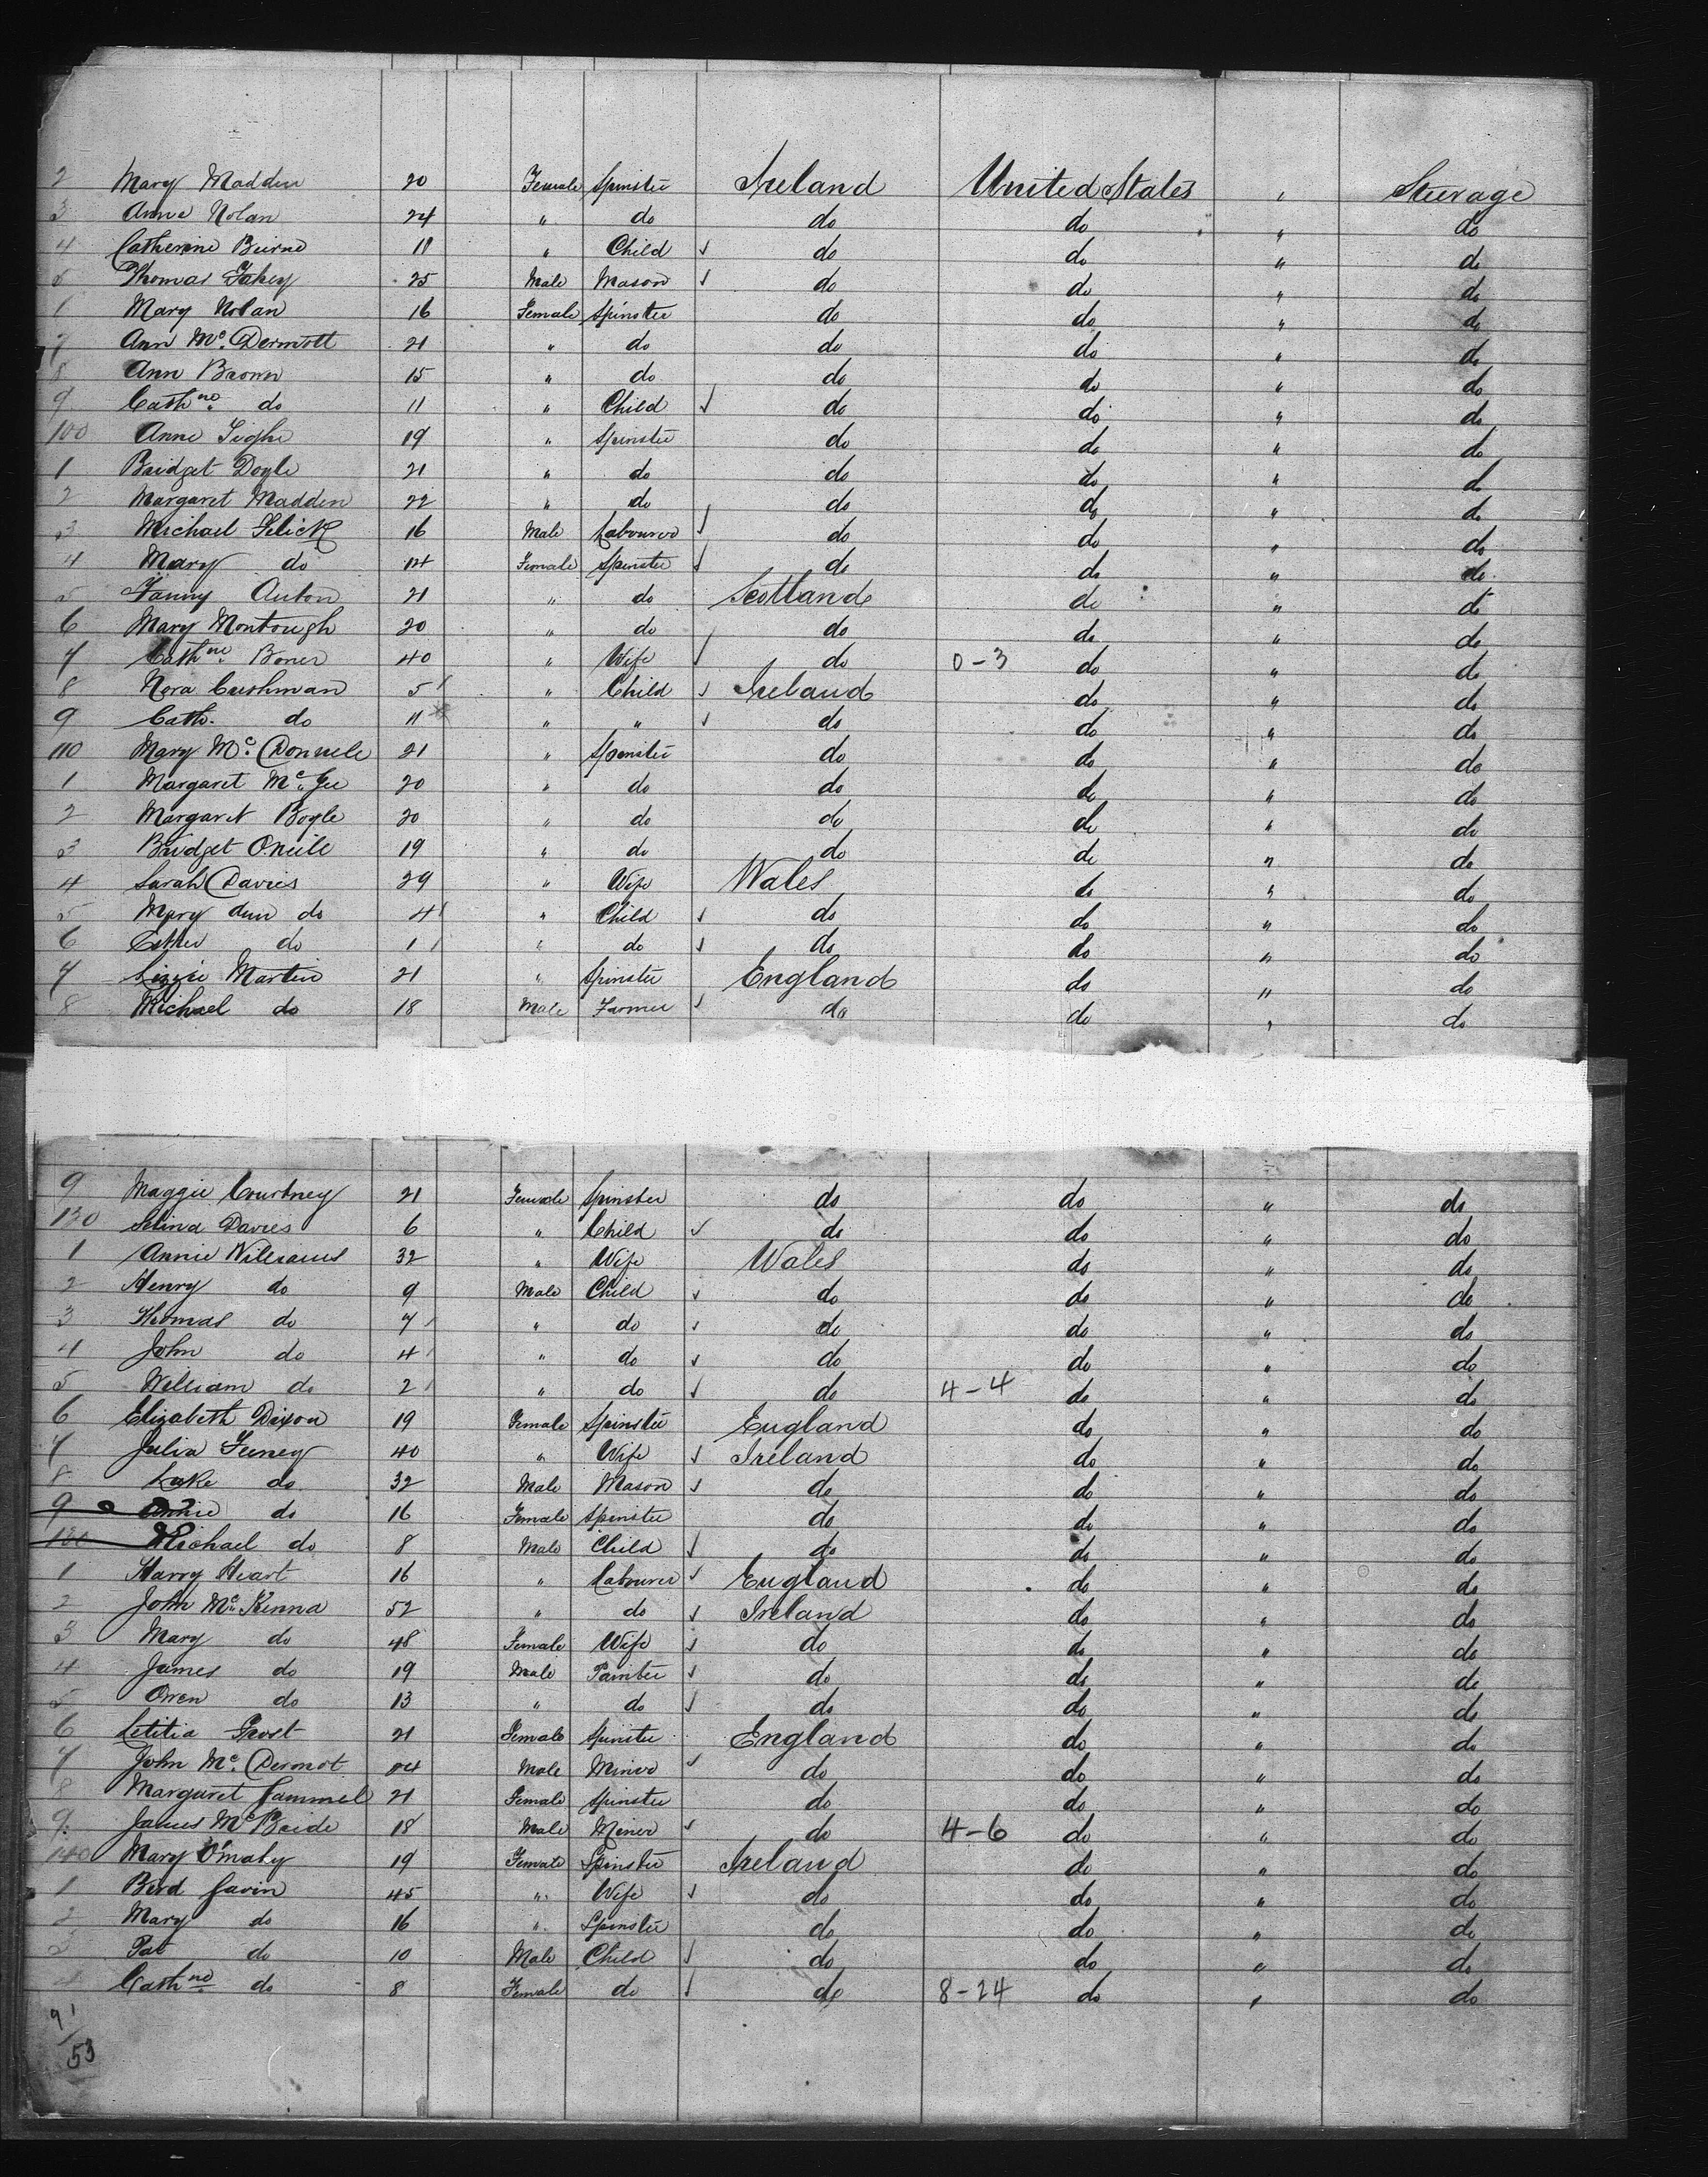 2 Mary Madden 20 Female Spinster Ireland United States " Steerage
3 Anne Nolan 24 " do do do " do
4 Catherine Beirne 11 " Child ✓ do do " do
5 Thomas Fahey 25 Male Mason ✓ do do " do
1 Mary Nolan 16 Female Spinster do do " do
7 Ann Mc. Dermott 21 " do do do " do
8 Ann Brown 15 " do do do " do
9 Cathne. do 11 " Child ✓ do do " do
100 Anne Tighe 19 " Spinster do do " do
1 Bridget Doyle 21 " do do do " do
2 Margaret Madden 22 " do do do " do
3 Michael 16 Male Labourer ✓ do do " do
4 Mary do 14 Female Spinster ✓ do do " do
5 Fanny 21 " do Scotland do " do
6 Mary Montough 20 " do do do " do
7 Cathne. Boner 40 " Wife ✓ do 0-3 do " do
8 Nora Cushman 5 " Child ✓ Ireland do " do
9 Cath. do 11 " " ✓ do do " do
110 Mary Mc. Donnele 21 " Spinster do do " do
1 Margaret Mc. Gee 20 " do do do " do
2 Margaret Boyle 20 " do do do " do
3 Bridget O.neile 19 " do do do " do
4 Sarah Davies 29 " Wife Wales do " do
5 Mary Ann do 4 " Child ✓ do do " do
6 Esther do 1 " do ✓ do do " do
7 Lizzie Martin 21 " Spinster England do " do
8 Michael do 18 Male Farmer ✓ do do " do
9 Maggie Courtney 21 Female Spinster do do " do
120 Selina Davies 6 " Child ✓ do do " do
1 Annie Williams 32 " Wife Wales do " do
2 Henry do 9 Male Child ✓ do do " do
3 Thomas do 7 " do ✓ do do " do
4 John do 4 " do ✓ do do " do
5 William do 2 " do ✓ do 4-4 do " do
6 Elizabeth Dixon 19 Female Spinster England do " do
7 Julia Feeney 40 " Wife ✓ Ireland do " do
8 Luke do 32 Male Mason ✓ do do " do
9 Annie do 16 Female Spinster do do " do
130 Michael do 8 Male Child ✓ do do " do
1 Harry Heart 16 " Labourer ✓ England do " do
2 John Mc. Kenna 52 " do ✓ Ireland do " do
3 Mary do 48 Female Wife ✓ do do " do
4 James do 19 Male Painter ✓ do do " do
5 Owen do 13 " do ✓ do do " do
6 Letitia Frost 21 Female Spinster England do " do
7 John Mc. Dermot Male Miner ✓ do do " do
8 Margaret Gammel 21 Female Spinster do do " do
9. James Mc Bride 18 Male Miner ✓ do 4-6 do " do
140 Mary O'maly 19 Female Spinster Ireland do " do
1 Bird Gavin 45 " Wife ✓ do do " do
2 Mary do 16 " Spinster do do " do
3 Pat do 10 Male Child ✓ do do " do
4 Cathne. do 8 Female do ✓ do 8-24 do " do
91/53